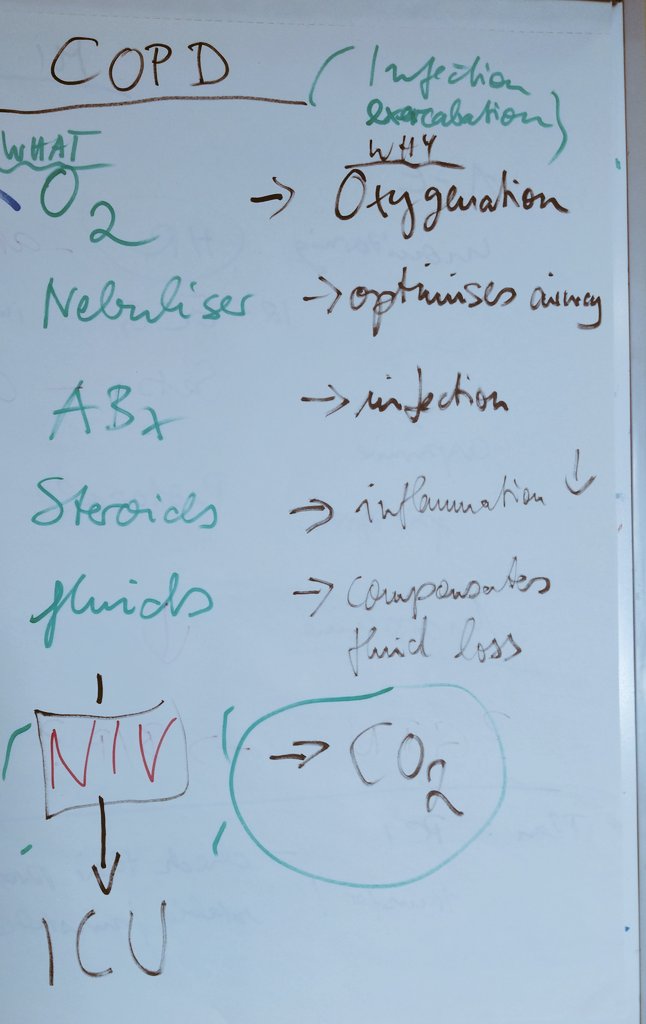 COPD
( Infection
exercabation )
WHAT
WHY
O2 → Oxygenation
Nebuliser → optimises airway
ABx → infection
Steroids → inflammation ↓
fluids → compensates
fluid loss
( NIV ) → CO2
ICU